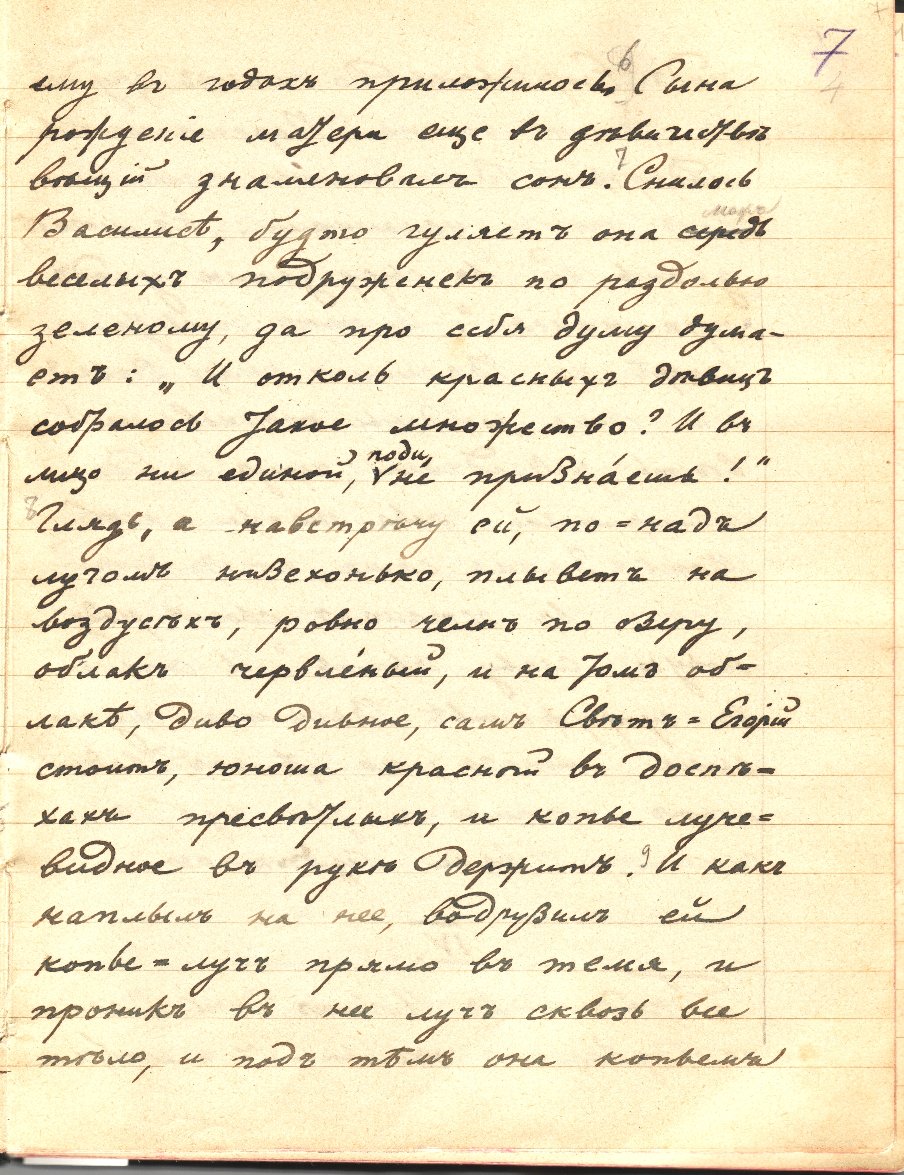 7
4
ему въ годахъ приложилось. 6 Сына
рожденіе матери еще въ дѣвичествѣ
вѣщій знаменовалъ сонъ. 7 Снилось
Василисѣ, будто гуляетъ она середь
веселыхъ подруженекъ по раздолью
зеленому, да про себя думу дума-
етъ: „И отколь красныхъ дѣвицъ
собралось такое множество? И въ
лицо ни единой, поди, не призна́ешь!"
8 Глядь, а навстрѣчу ей, по=надъ
лугомъ низехонько, плыветъ на
воздусѣхъ, ровно челнъ по озеру,
облакъ червлёный, и на томъ об=
лакѣ, диво дивное, самъ Свѣтъ=Егорій
стоитъ, юноша красный въ доспѣ=
хахъ пресвѣтлыхъ, и копье луче=
видное въ рукѣ держитъ. 9 И какъ
наплылъ на нее, водрузилъ ей
копье=лучъ прямо въ темя, и
проникъ въ нее лучъ сквозь все
тѣло, и подъ тѣмъ она копьемъ